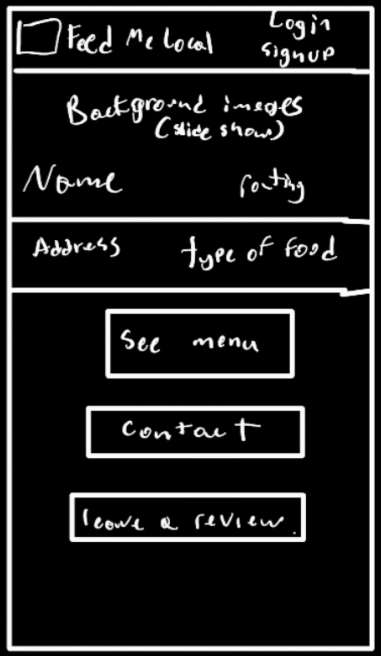 Feed Me Local
Login
signup
Background images
(slide show)
Name
rating
Address
type of food
See menu
Contact
leave a review.